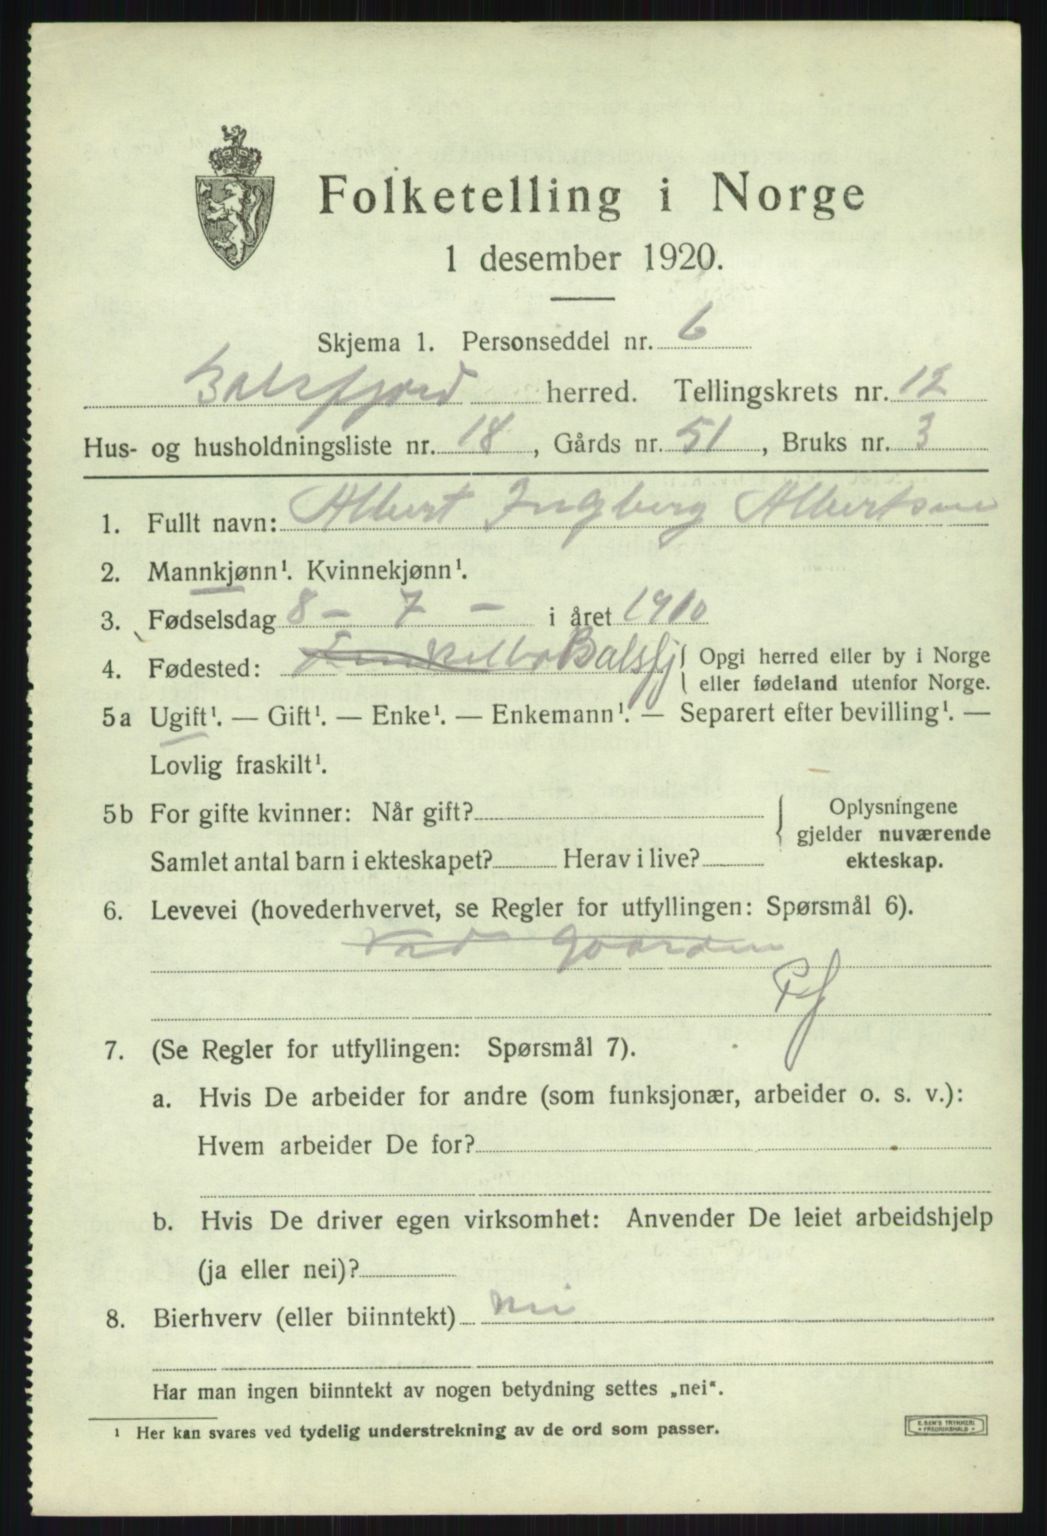 Folketelling i Norge
1 desember 1920.
Skjema 1. Personseddel nr. 6
Balsfjord herred. Tellingskrets nr. 12
Hus- og husholdningsliste nr. 18, Gårds nr. 51, Bruks nr. 3
1. Fullt navn: Albert Ingberg Albertsen
2. Mannkjønn¹. Kvinnekjønn¹.
3. Fødselsdag 8 - 7 - i året 1910
4. Fødested: Balsfj Opgi herred eller by i Norge
eller fødeland utenfor Norge.
5a Ugift¹. — Gift¹. — Enke¹. — Enkemann¹. — Separert efter bevilling¹. —
Lovlig fraskilt¹.
5b For gifte kvinner: Når gift? Oplysningene
gjelder nuværende
Samlet antal barn i ekteskapet? Herav i live? ekteskap.
6. Levevei (hovederhvervet, se Regler for utfyllingen: Spørsmål 6).
Ved Gaarden
7. (Se Regler for utfyllingen: Spørsmål 7).
a. Hvis De arbeider for andre (som funksjonær, arbeider o. s. v.):
Hvem arbeider De for?
b. Hvis De driver egen virksomhet: Anvender De leiet arbeidshjelp
(ja eller nei)?
8. Bierhverv (eller biinntekt) nei
Har man ingen biinntekt av nogen betydning settes „nei“.
¹ Her kan svares ved tydelig understrekning av de ord som passer.
E. SEM'S TRYKKERI
FREDRIKSHALD